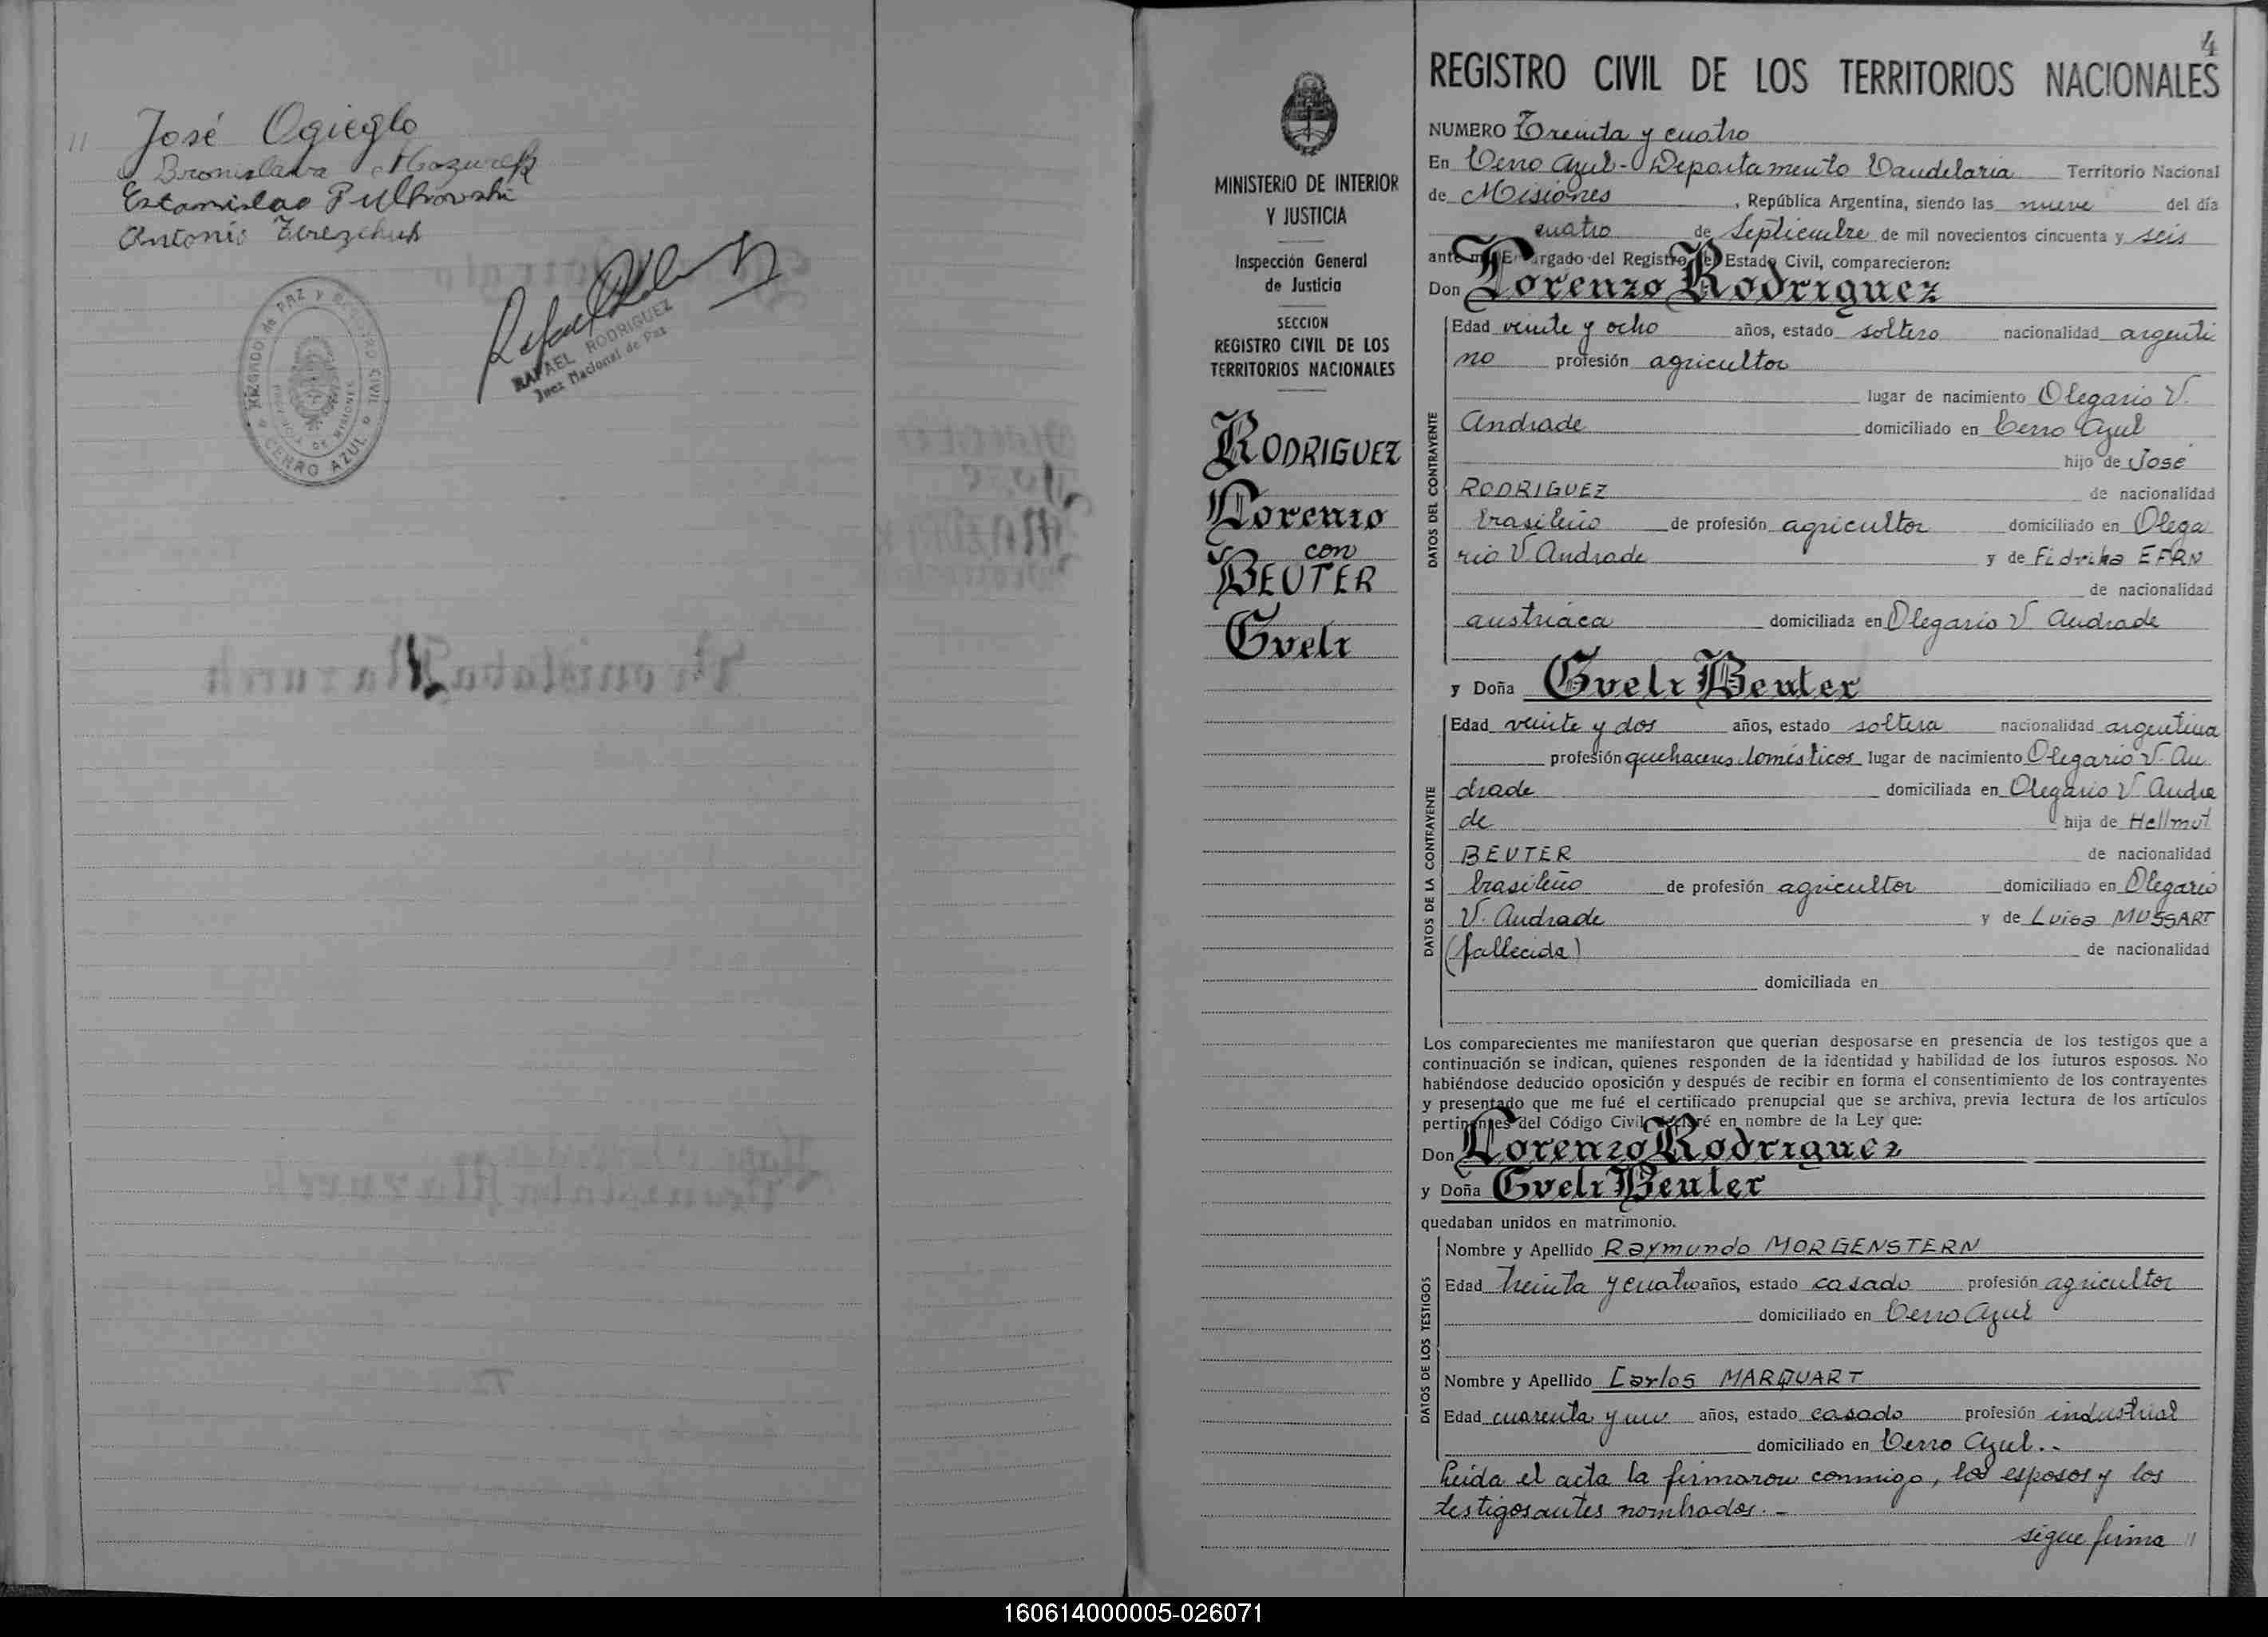 José Ogieglo
Bronislava Mazurek
Estanislao Pulkowski
Antonio
RAFAEL RODRIGUEZ
Juez Nacional de Paz
JUZGADO de PAZ y REGISTRO CIVIL
PROVINCIA DE MISIONES
CERRO AZUL
4
REGISTRO CIVIL DE LOS TERRITORIOS NACIONALES
MINISTERIO DE INTERIOR
Y JUSTICIA
Inspección General
de Justicia
SECCION
REGISTRO CIVIL DE LOS
TERRITORIOS NACIONALES
RODRIGUEZ
Lorenzo
con
BEUTER
Gveli
NUMERO Treinta y cuatro
En Cerro Azul - Departamento Candelaria Territorio Nacional
de Misiones, República Argentina, siendo las nueve del día
cuatro de Septiembre de mil novecientos cincuenta y seis
ante mí, Encargado del Registro del Estado Civil, comparecieron:
Don Lorenzo Rodriguez
DATOS DEL CONTRAYENTE
Edad veinte y ocho años, estado soltero nacionalidad argenti
no profesión agricultor
lugar de nacimiento Olegario V.
Andrade domiciliado en Cerro Azul
hijo de José
RODRIGUEZ de nacionalidad
brasileño de profesión agricultor domiciliado en Olega
rio V Andrade y de Fidrika EFRN
de nacionalidad
austriaca domiciliada en Olegario V. Andrade
y Doña Gveli Beuter
DATOS DE LA CONTRAYENTE
Edad veinte y dos años, estado soltera nacionalidad argentina
profesión quehaceres domésticos lugar de nacimiento Olegario V. An
drade domiciliada en Olegario V Andra
de hija de Hellmut
BEUTER de nacionalidad
brasileño de profesión agricultor domiciliado en Olegario
V. Andrade y de Luisa MUSSART
(fallecida) de nacionalidad
domiciliada en
Los comparecientes me manifestaron que querían desposarse en presencia de los testigos que a
continuación se indican, quienes responden de la identidad y habilidad de los futuros esposos. No
habiéndose deducido oposición y después de recibir en forma el consentimiento de los contrayentes
y presentado que me fué el certificado prenupcial que se archiva, previa lectura de los artículos
pertinentes del Código Civil, declaré en nombre de la Ley que:
Don Lorenzo Rodriguez
y Doña Gveli Beuter
quedaban unidos en matrimonio.
DATOS DE LOS TESTIGOS
Nombre y Apellido Raymundo MORGENSTERN
Edad treinta y cuatro años, estado casado profesión agricultor
domiciliado en Cerro Azul
Nombre y Apellido Carlos MARQUART
Edad cuarenta y un años, estado casado profesión industrial
domiciliado en Cerro Azul.-
Leida el acta la firmaron conmigo, los esposos y los
testigos antes nombrados.-
sigue firma //
160614000005-026071